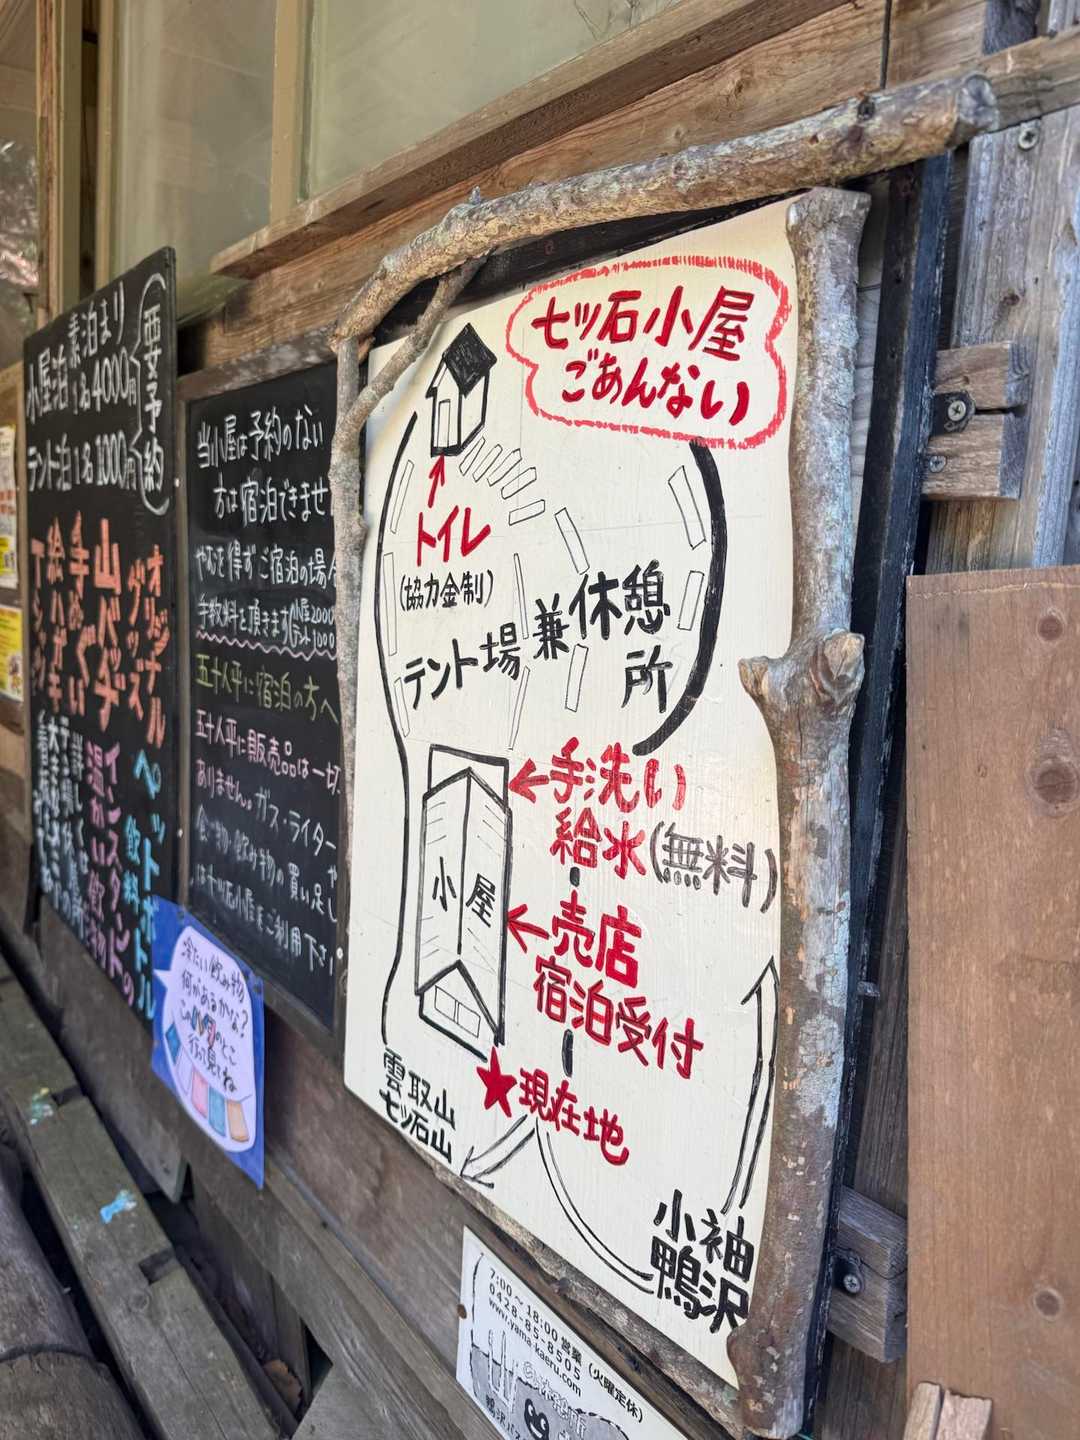 小屋泊 素泊まり
1名4000円
テント泊 1名1000円
要予約
オリジナル
グッズ
山バッヂ
手ぬぐい
絵ハガキ
Tシャツ
ペットボトル
飲料
インスタントの
温かい飲物
当小屋は予約のない
方は宿泊できませ
やむを得ずご宿泊の場合
手数料と頂きます(小屋2000
テント1000
五十人平に宿泊の方へ
五十人平に販売品は一切
ありません。ガス・ライターや
食べ物・飲み物の買い足し
は七ツ石小屋をご利用下さい
冷たい飲み物
何があるかな?
行って見てね
七ツ石小屋
ごあんない
トイレ
(協力金制)
テント場兼休憩所
手洗い
給水(無料)
小屋
売店
宿泊受付
現在地
雲取山
七ツ石山
小袖
鴨沢
7:00～18:00営業(火曜定休)
0428-85-8505
www.yama-kaeru.com